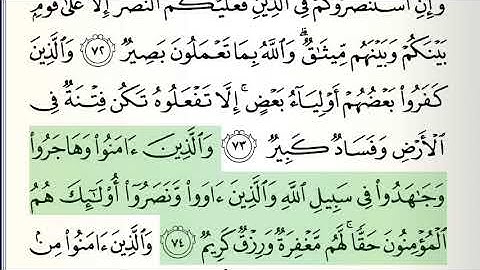 وَإِنِ ٱسْتَنصَرُوكُمْ فِى ٱلدِّينِ فَعَلَيْكُمُ ٱلنَّصْرُ إِلَّا عَلَىٰ قَوْمٍۭ
بَيْنَكُمْ وَبَيْنَهُم مِّيثَٰقٌ ۗ وَٱللَّهُ بِمَا تَعْمَلُونَ بَصِيرٌ ٧٢ وَٱلَّذِينَ
كَفَرُوا۟ بَعْضُهُمْ أَوْلِيَآءُ بَعْضٍ ۚ إِلَّا تَفْعَلُوهُ تَكُن فِتْنَةٌ فِى
ٱلْأَرْضِ وَفَسَادٌ كَبِيرٌ ٧٣ وَٱلَّذِينَ ءَامَنُوا۟ وَهَاجَرُوا۟
وَجَٰهَدُوا۟ فِى سَبِيلِ ٱللَّهِ وَٱلَّذِينَ ءَاوَوا۟ وَّنَصَرُوٓا۟ أُو۟لَٰٓئِكَ هُمُ
ٱلْمُؤْمِنُونَ حَقًّا ۚ لَّهُم مَّغْفِرَةٌ وَرِزْقٌ كَرِيمٌ ٧٤ وَٱلَّذِينَ ءَامَنُوا۟ مِنۢ